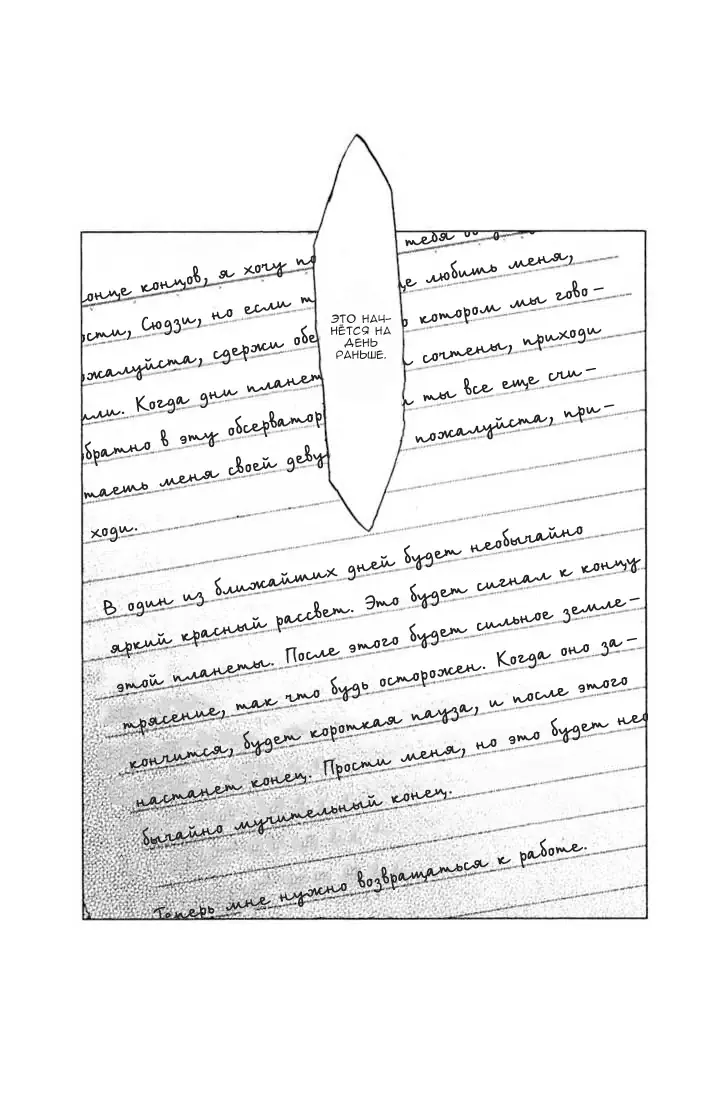 тебя
онце концов, я хочу по
е любить меня,
сти, Сюдзи, но если т
о котором мы гово-
ожалуйста, сдержи обе
сочтены, приходи
или. Когда дни планет
и ты все еще счи-
братно в эту обсерватор
пожалуйста, при-
таешь меня своей деву
ходи.
ЭТО НАЧ-
НЁТСЯ НА
ДЕНЬ
РАНЬШЕ.
В один из ближайших дней будет необычайно
яркий красный рассвет. Это будет сигнал к концу
этой планеты. После этого будет сильное земле-
трясение, так что будь осторожен. Когда оно за-
кончится, будет короткая пауза, и после этого
настанет конец. Прости меня, но это будет нео
бычайно мучительный конец.
Теперь мне нужно возвращаться к работе.